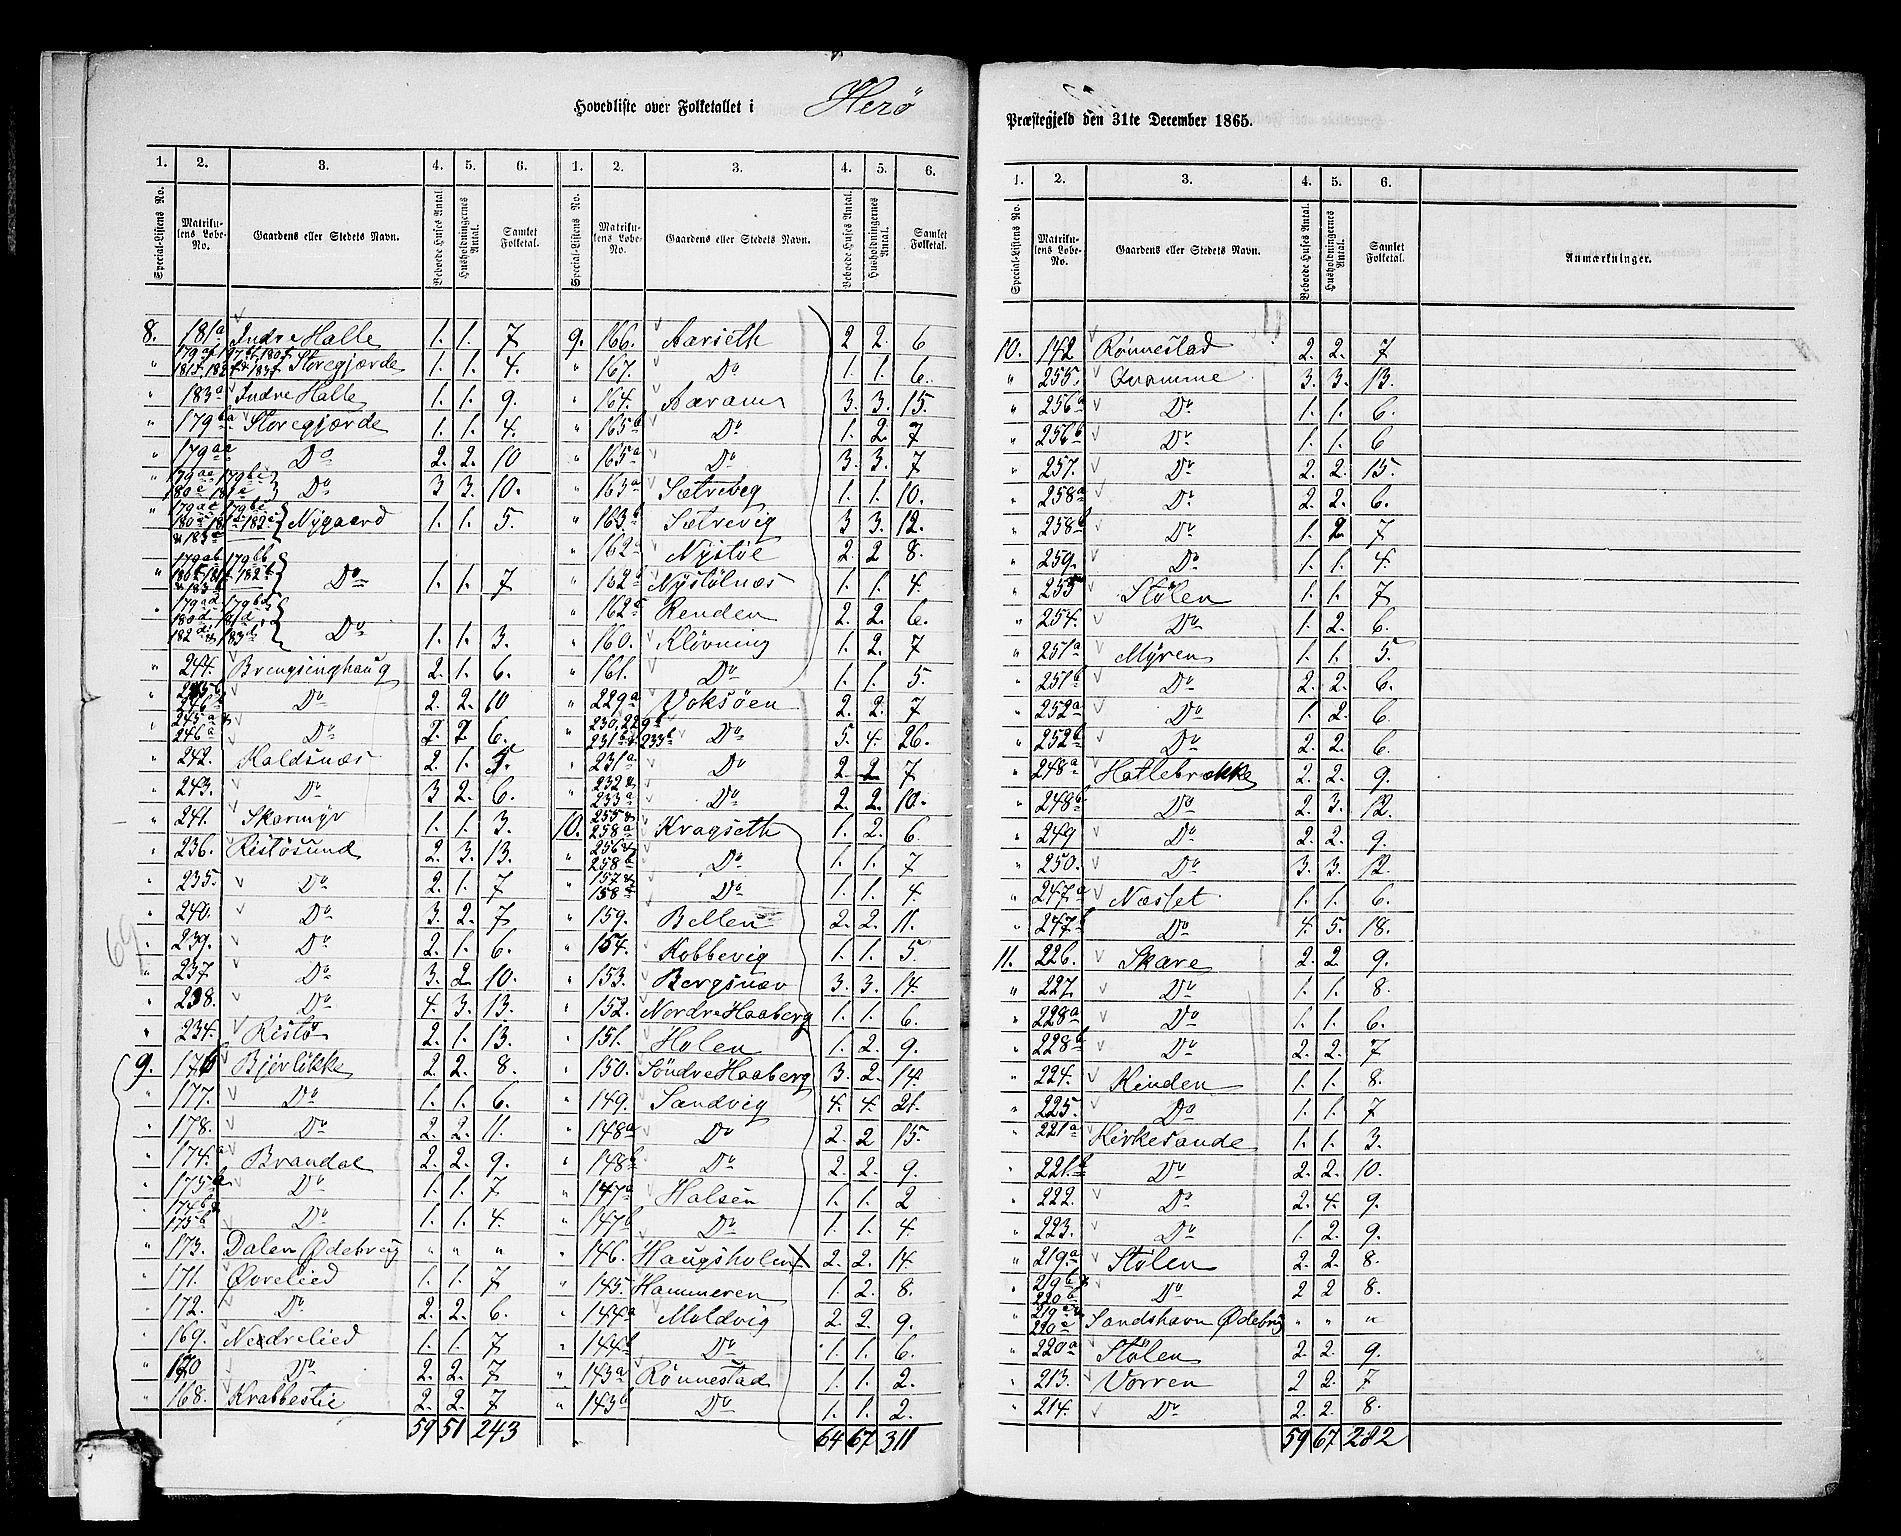 Hovedliste over Folketallet i Herö
Præstegjeld den 31te December 1865.
1. 2. 3. 4. 5. 6. 1. 2. 3. 4. 5. 6.
Special-Listens No. Matrikulens Løbe-No. Gaardens eller Stedets Navn. Beboede Huses Antal. Husholdningernes Antal. Samlet Folketal. Special-Listens No. Matrikulens Løbe-No. Gaardens eller Stedets Navn. Beboede Huses Antal. Husholdningernes Antal. Samlet Folketal.
8. 181a Indre Halle 1. 1. 7
" Storegjærde 1. 1. 4.
" 183a Indre Halle 1. 1. 9.
" 179ba Storegjærde 1. 1. 4.
" 179aa Do 2. 2. 10
" 179ae 179be 180e 181e Do 3 3. 10.
" 179ac 179bc 180c 181c 182c & 183c Nygaard 1. 1. 5.
" 179ab 179bb 180b 181b 182b & 183b Do 1. 1. 7
" 179ad 179bd 180d 181d 182d & 183d Do 1. 1. 3.
" 244. Brengsinghaug 2. 1. 6.
" 245b 246b Do 2. 2. 10
" 245a & 246a Do 2. 2. 6.
" 242. Kaldsnæs 2. 1. 5.
" 243. Do 3 2. 6.
" 241. Skarmyr 1. 1. 3.
" 236. Ristösund 2. 3. 13.
" 235. Do 2. 1. 7
" 240. Do 3. 2. 7
" 239. Do 2. 1. 6.
" 237 Do 3. 2. 10.
" 238. Do 4. 3. 13.
" 234. Ristö 2. 1. 13.
9. 176 Bjerlökke 2. 2. 8.
" 177. Do 1. 1. 6.
" 178. Do 2. 2. 11.
" 174.a Brandal 2. 2. 9.
" 175a Do 1. 1. 7
" 174b & 175b Do 1. 1. 4.
" 173. Dalen Ødebrug " " "
" 171. Øvrelied 1. 1. 7
" 172. Do 2. 2. 6.
" 169. Nedrelied 1. 1. 7
" 170 Do 2. 2. 7
" 168. Krabbestie 2. 2. 7
59 51 243
9. 166. Aarseth 2 2. 6
" 167. Do 1. 1. 6.
" 164. Aaram 3. 3. 15.
" 165b Do 1. 2. 7
" 165a Do 3. 3. 7
" 163a Sætrevig 1. 1. 10.
" 163b Sætrevig 3 3. 12.
" 162a Nystöl 2. 2 8.
" 162b Nystölnæs 1. 1. 4.
" 162c Renden 2. 2. 6.
" 160. Klövning 1. 2. 7
" 161. Do 1. 1. 5.
" 229a Voksöen 2. 2. 7
" 230, 229b 231b & 233b Do 5. 4. 26.
" 231a Do 2. 2 7
" 232 & 233a Do 2. 2. 10.
10. 255 & 258a Kragseth 1. 2. 6.
" 256 & 258b Do 1. 1. 7
" 157 & 158 Do 1. 1. 4.
" 159. Bellen 2. 2. 11.
" 154. Kobbevig 1. 1. 5.
" 153. Bergsnæv 3. 3. 14.
" 152. Nordre Haaberg 1. 1. 6.
" 151. Holen 1. 2. 9.
" 150. Söndre Haaberg 3. 2. 14.
" 149. Sandvig 4. 4. 21.
" 148a Do 2. 2 15.
" 148b Do 2. 2. 9.
" 147a Halsen 1. 1. 2
" 147b Do 1. 1. 4.
" 146. Haugsholm 2. 2. 14
" 145. Hammeren 1. 2. 8.
" 144a Moldvig 2. 2. 9.
" 144b Do 1. 1. 6.
" 143a Rönnestad 1. 1. 2.
" 143b Do 1. 1. 2.
64 67 311
1. 2. 3. 4. 5. 6.
Special-Listens No. Matrikulens Løbe-No. Gaardens eller Stedets Navn. Beboede Huses Antal. Husholdningernes Antal. Samlet Folketal. Anmærkninger.
10. 142 Rönnestad 2. 2. 7
" 255. Qvamme 3. 3. 13.
" 256a Do 1. 1. 6.
" 256b Do 1. 1. 6
" 257. Do 2. 2. 15.
" 258a Do 2. 2. 6.
" 258b Do 1. 2. 7
" 259. Do 1. 1. 4.
" 253 Stölen 1. 1. 7
" 254. Do 1. 2. 6.
" 251a Myren 1. 1. 5.
" 251b Do 2. 2. 6.
" 252a Do 1. 2. 6.
" 252b Do 2. 2. 6.
" 248a Hatlebrække 2. 2. 9.
" 248b Do 2. 3. 12.
" 249 Do 2. 2. 9.
" 250. Do 3. 3. 12.
" 247a Næsset 1. 1. 6.
" 247b Do 4. 5. 18.
11. 226. Skare 2. 2. 9.
" 227. Do 1. 1. 8.
" 228a Do 1. 1. 6.
" 228b Do 2. 2. 7
" 224. Kinden 1. 1. 8.
" 225. Do 1. 1. 7
" 221a Kirkesande 1. 1. 3.
" 221.b Do 2. 2. 10.
" 222. Do 2. 4. 9.
" 223. Do 1. 2. 9.
" 219.a Stölen 2. 2. 8.
" 219b & 220b Do 2 2 8.
" 219c & 220c Sandshavn Ødebrug " " "
" 220a Stölen 2. 2. 9.
" 213. Vorren 2 2. 7
" 214. Do 2. 2. 8.
59 67 282